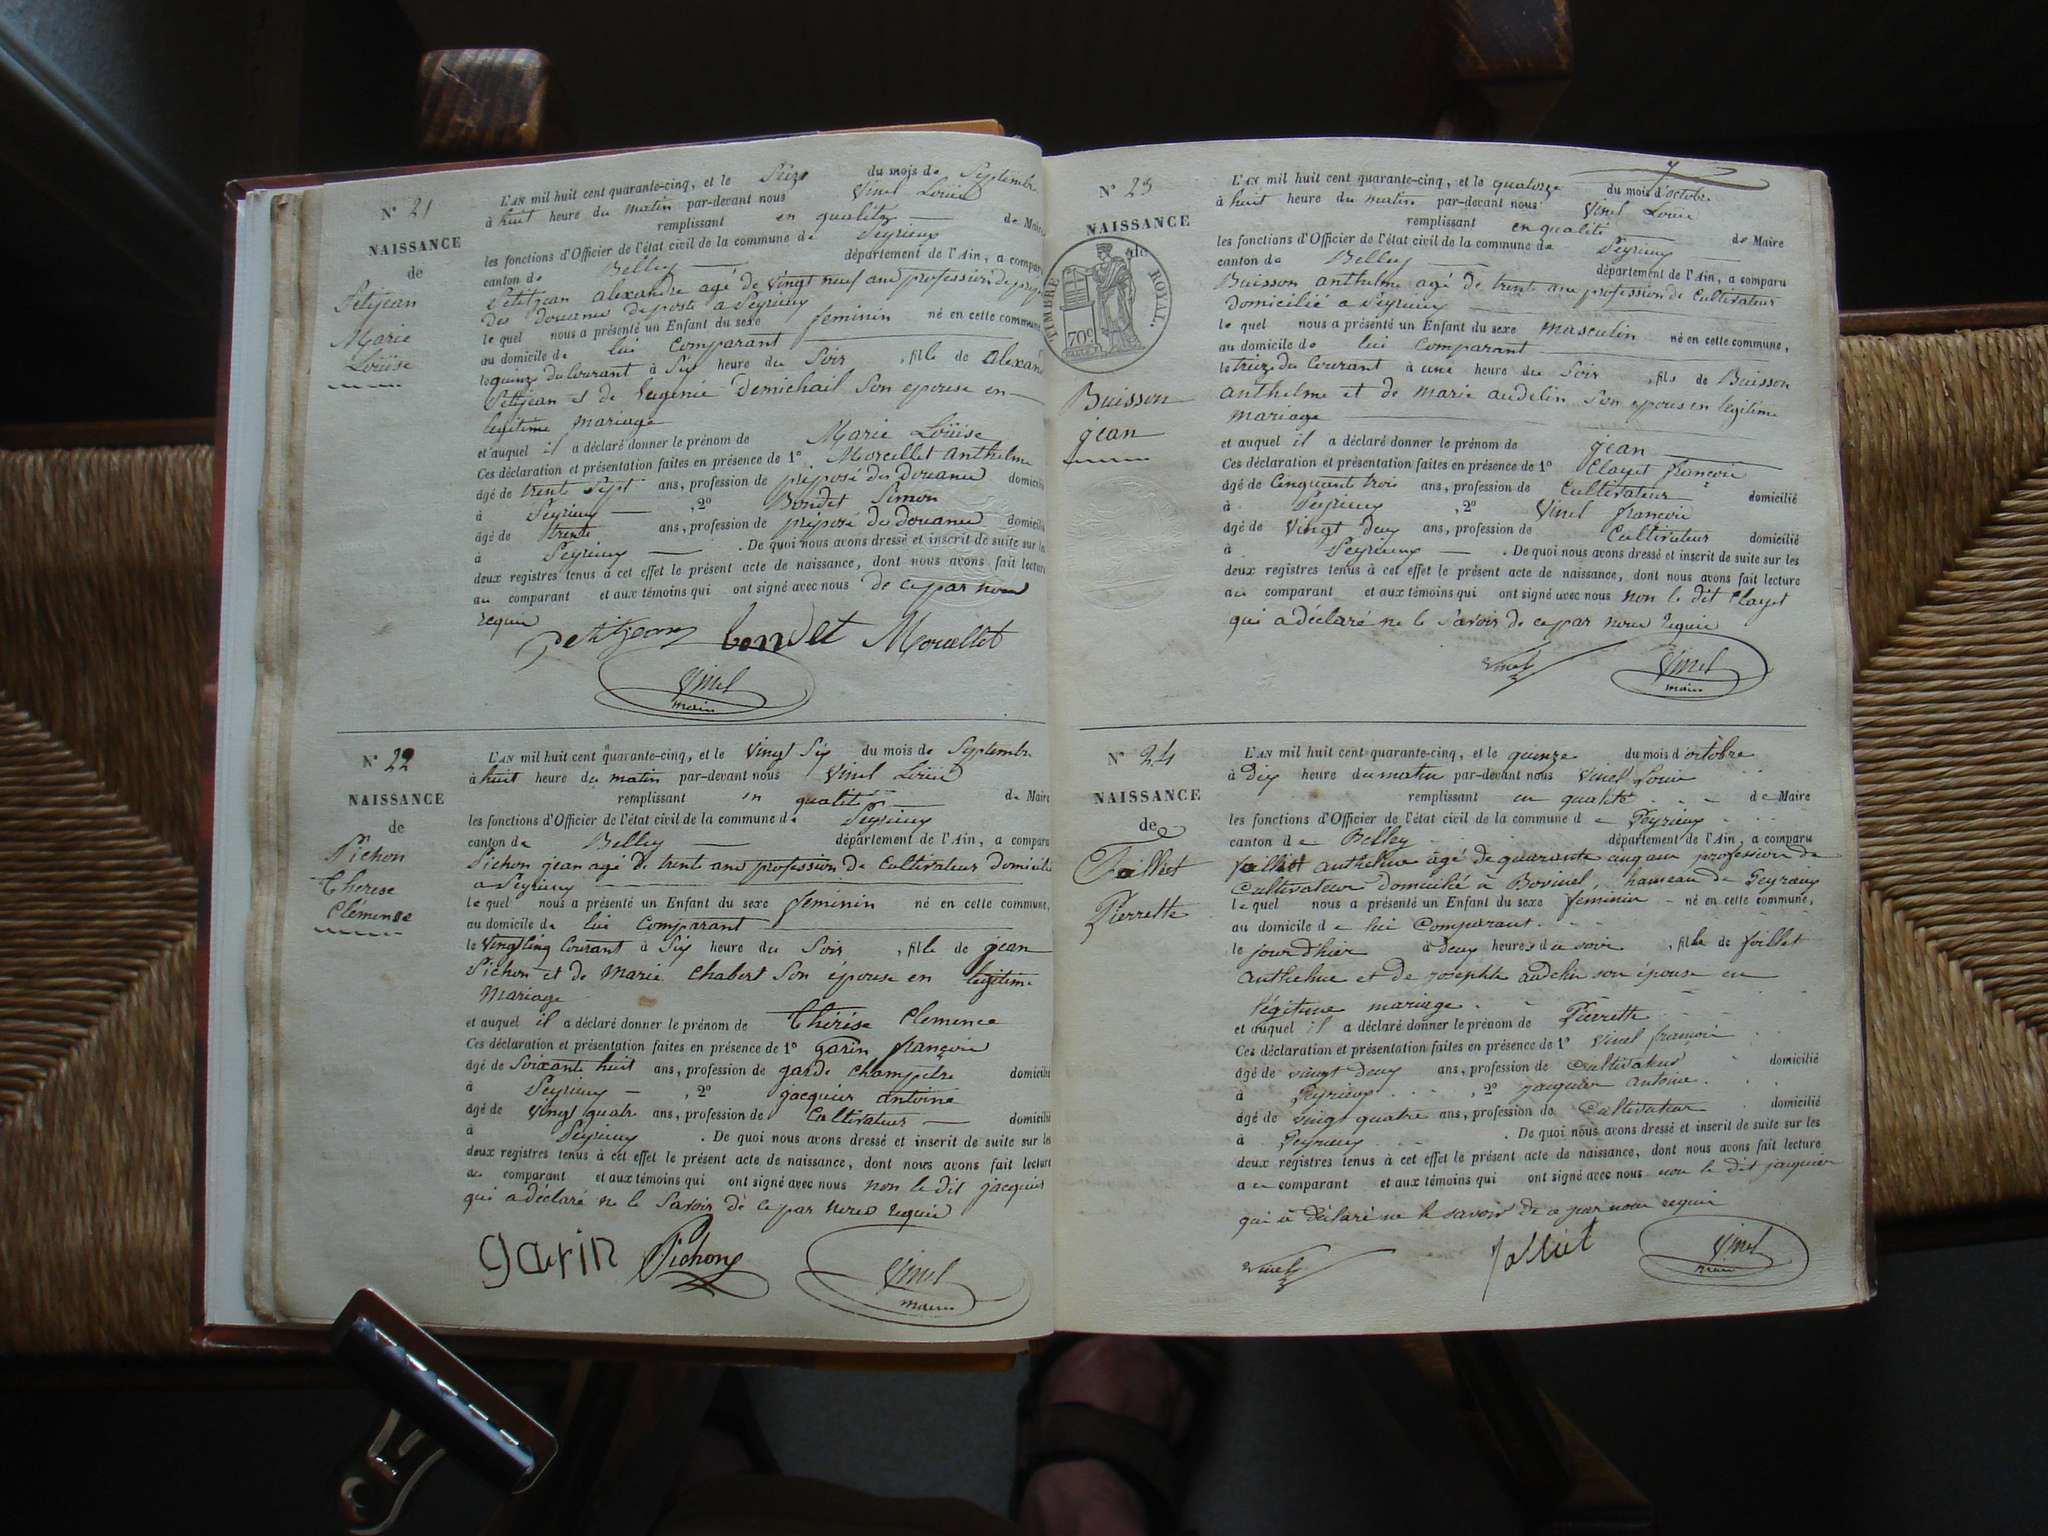 N° 21
NAISSANCE
de
Petitjean
Marie
Loüise
L'AN mil huit cent quarante-cinq, et le Seize du mois de Septembre
à huit heure du matin par-devant nous Vinel Loüis
remplissant en qualité de Maire
les fonctions d'Officier de l'état civil de la commune de Peyrieux
canton de Belley département de l'Ain, a comparu
Petitjean alexandre agé de vingt neuf ans profession de préposé
des douanes deposte a Peyrieux
le quel nous a présenté un Enfant du sexe feminin né en cette commune,
au domicile de lui comparant
le quinze du Courant à Six heure du Soir , fille de alexandre
Petitjean et de Eugenie Demichail Son epouse en
legitime mariage
et auquel il a déclaré donner le prénom de Marie Loüise
Ces déclaration et présentation faites en présence de 1° Morcellet anthelme
âgé de trente Sept ans, profession de préposé des Douanes domicilié
à Peyrieux , 2° Bondet Simon
âgé de trente ans, profession de préposé des douanes domicilié
à Peyrieux . De quoi nous avons dressé et inscrit de suite sur les
deux registres tenus à cet effet le présent acte de naissance, dont nous avons fait lecture
au comparant et aux témoins qui ont signé avec nous de ce par nous
requis
Petitjean bondet Morcellet
Vinel
maire
N° 22
NAISSANCE
de
Pichon
Thérèse
Clémence
L'AN mil huit cent quarante-cinq, et le vingt Six du mois de Septembre
à huit heure du matin par-devant nous Vinel Loüis
remplissant en qualité de Maire
les fonctions d'Officier de l'état civil de la commune de Peyrieux
canton de Belley département de l'Ain, a comparu
Pichon jean agé de trente ans profession de Cultivateur domicilié
a Peyrieux
le quel nous a présenté un Enfant du sexe féminin né en cette commune,
au domicile de lui comparant
le vingt cinq Courant à Six heure du Soir , fille de jean
Pichon et de Marie Chabert Son épouse en légitime
Mariage
et auquel il a déclaré donner le prénom de Thérése Clemence
Ces déclaration et présentation faites en présence de 1° Garin françois
âgé de Soixante huit ans, profession de garde champetre domicilié
à Peyrieux , 2° jacquier antoine
âgé de vingt quatre ans, profession de Cultivateur domicilié
à Peyrieux . De quoi nous avons dressé et inscrit de suite sur les
deux registres tenus à cet effet le présent acte de naissance, dont nous avons fait lecture
au comparant et aux témoins qui ont signé avec nous non le dit jacquier
qui a déclaré ne le Savoir de ce par nous requis
garin Pichon Vinel
maire
7
N° 23
NAISSANCE
de
TIMBRE ROYAL.
70c
Buisson
jean
L'AN mil huit cent quarante-cinq, et le quatorze du mois d'octobre
à huit heure du matin par-devant nous Vinel Loüis
remplissant en qualité de Maire
les fonctions d'Officier de l'état civil de la commune de Peyrieux
canton de Belley département de l'Ain, a comparu
Buisson anthelme agé de trente ans profession de Cultivateur
domicilié a Peyrieux
le quel nous a présenté un Enfant du sexe masculin né en cette commune,
au domicile de lui comparant
le treize du Courant à une heure du Soir , fils de Buisson
anthelme et de marie audelin Son epouse en legitime
mariage
et auquel il a déclaré donner le prénom de jean
Ces déclaration et présentation faites en présence de 1° Clayet françois
âgé de Cinquante trois ans, profession de Cultivateur domicilié
à Peyrieux , 2° Vinel françois
âgé de vingt deux ans, profession de Cultivateur domicilié
à Peyrieux . De quoi nous avons dressé et inscrit de suite sur les
deux registres tenus à cet effet le présent acte de naissance, dont nous avons fait lecture
au comparant et aux témoins qui ont signé avec nous non le dit Clayet
qui a déclaré ne le Savoir de ce par nous requis
Vinel Vinel
maire
N° 24
NAISSANCE
de
Falliet
Pierrette
L'AN mil huit cent quarante-cinq, et le quinze du mois d'octobre
à dix heure du matin par-devant nous Vinel Louis
remplissant en qualité de Maire
les fonctions d'Officier de l'état civil de la commune de Peyrieux
canton de Belley département de l'Ain, a comparu
falliet anthelme agé de quarante cinq ans profession de
Cultivateur domicilié à Bovinel, hameau de Peyrieux
le quel nous a présenté un Enfant du sexe feminin né en cette commune,
au domicile de lui comparant
le jour d'hier à deux heures du soir , fille de falliet
anthelme et de josephte audelin son épouse en
légitime mariage
et auquel il a déclaré donner le prénom de Pierrette
Ces déclaration et présentation faites en présence de 1° Vinel françois
âgé de vingt deux ans, profession de Cultivateur domicilié
à Peyrieux , 2° jacquier antoine
âgé de vingt quatre ans, profession de Cultivateur domicilié
à Peyrieux . De quoi nous avons dressé et inscrit de suite sur les
deux registres tenus à cet effet le présent acte de naissance, dont nous avons fait lecture
au comparant et aux témoins qui ont signé avec nous non le dit jacquier
qui a déclaré ne le savoir de ce par nous requis
Vinel falliet Vinel
maire